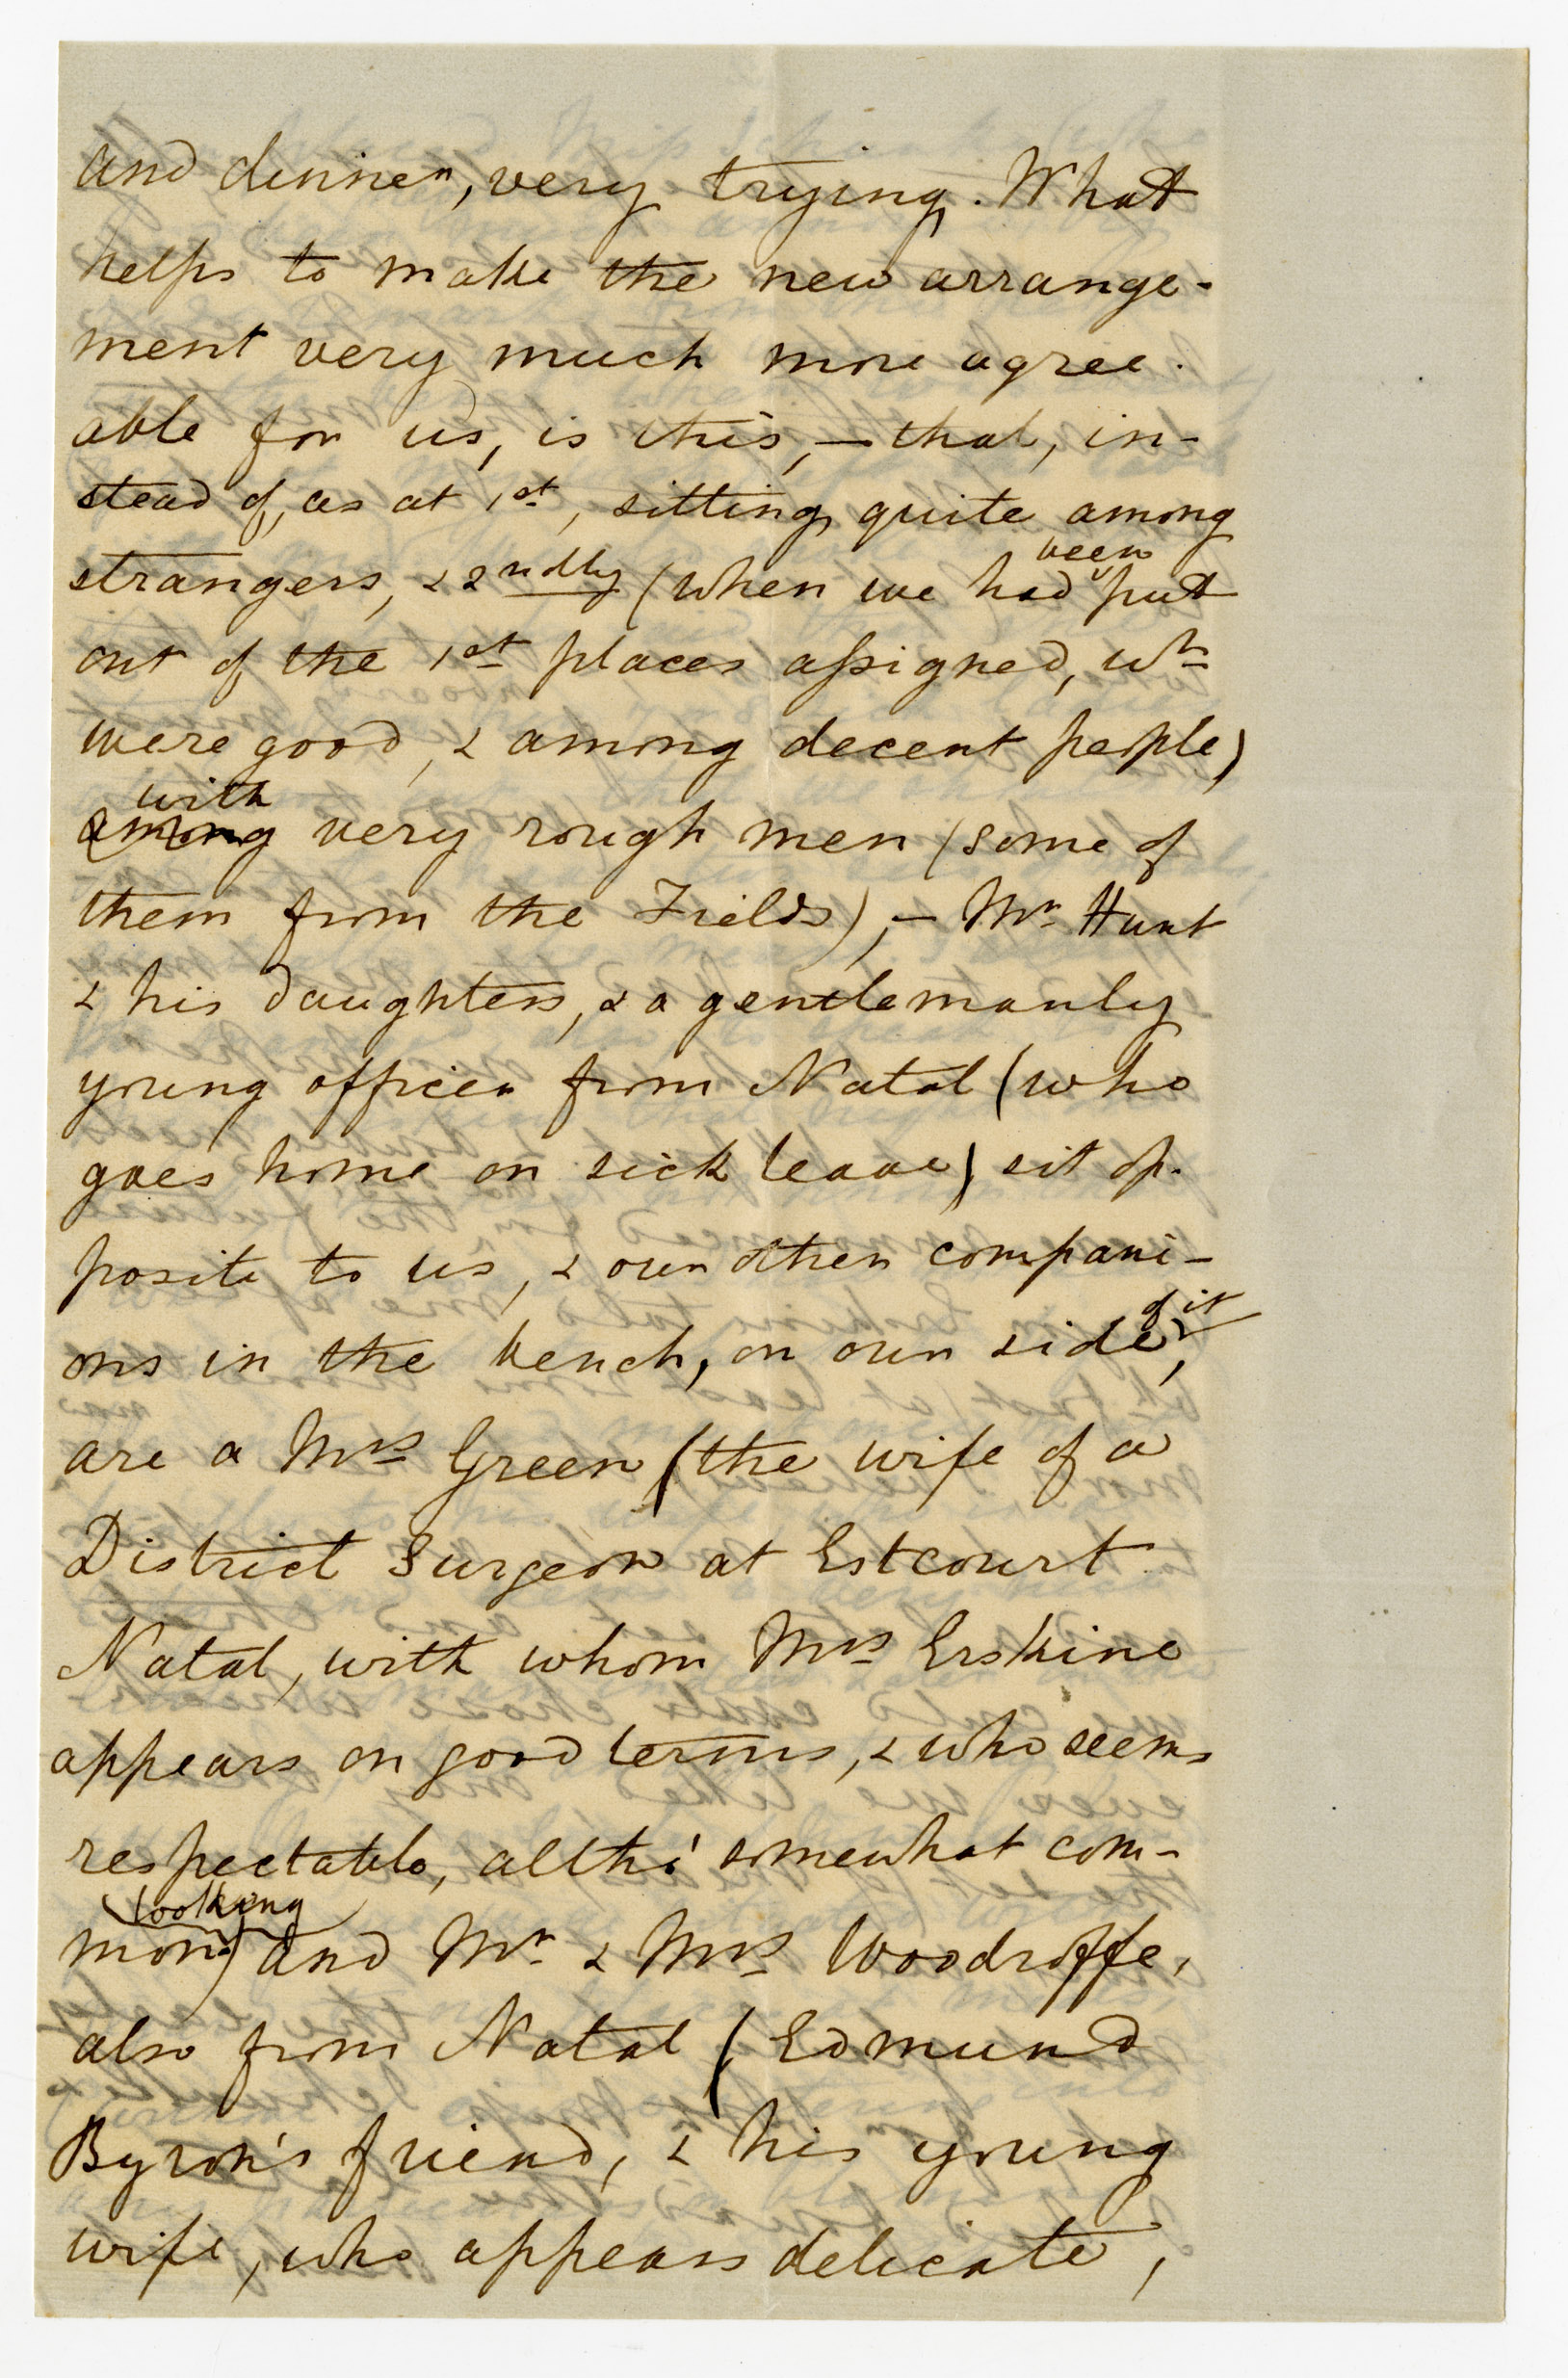 and dinner, very trying. What
helps to make the new arrange-
ment very much more agree-
able for us, is this, — that, in-
stead of, as at 1st, sitting quite among
strangers, & 2ndly (when we had been put
out of the 1st places assigned, wh
were good, & among decent people)
among with very rough men (some of
them from the Fields), — Mr Hunt
& his daughters, & a gentlemanly
young officer from Natal (who
goes home on sick leave) sit op-
posite to us, & our other compani-
ons in the bench, on our side of it,
are a Mrs Green (the wife of a
District Surgeon at Estcourt
Natal, with whom Mrs Erskine
appears on good terms, & who seems
respectable, altho' somewhat com-
mon looking) and Mr & Mrs Woodroffe,
also from Natal (Edmund
Byron's friend, & his young
wife, who appears delicate,